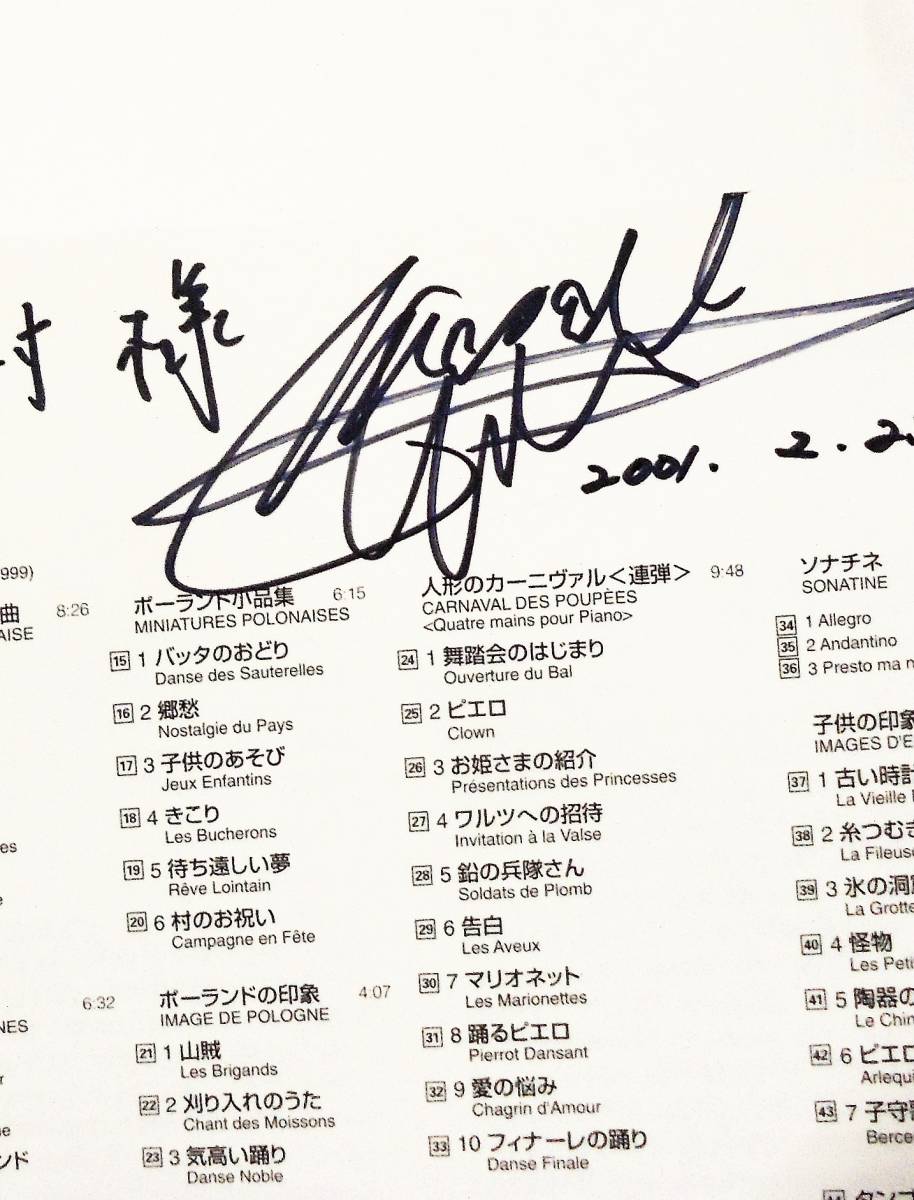 村 様
2001. 2. 2
999)
曲 8:26
AISE
es
e
6:32
NES
r
ne
ンド
ポーランド小品集 6:15
MINIATURES POLONAISES
15 1 バッタのおどり
Danse des Sauterelles
16 2 郷愁
Nostalgie du Pays
17 3 子供のあそび
Jeux Enfantins
18 4 きこり
Les Bucherons
19 5 待ち遠しい夢
Rêve Lointain
20 6 村のお祝い
Campagne en Fête
ポーランドの印象 4:07
IMAGE DE POLOGNE
21 1 山賊
Les Brigands
22 2 刈り入れのうた
Chant des Moissons
23 3 気高い踊り
Danse Noble
人形のカーニヴァル<連弾> 9:48
CARNAVAL DES POUPÈES
<Quatre mains pour Piano>
24 1 舞踏会のはじまり
Ouverture du Bal
25 2 ピエロ
Clown
26 3 お姫さまの紹介
Présentations des Princesses
27 4 ワルツへの招待
Invitation à la Valse
28 5 鉛の兵隊さん
Soldats de Plomb
29 6 告白
Les Aveux
30 7 マリオネット
Les Marionettes
31 8 踊るピエロ
Pierrot Dansant
32 9 愛の悩み
Chagrin d'Amour
33 10 フィナーレの踊り
Danse Finale
ソナチネ
SONATINE
34 1 Allegro
35 2 Andantino
36 3 Presto ma n
子供の印象
IMAGES D'E
37 1 古い時計
La Vieille
38 2 糸つむぎ
La Fileus
39 3 氷の洞窟
La Grotte
40 4 怪物
Les Peti
41 5 陶器の
Le Chin
42 6 ピエロ
Arlequi
43 7 子守
Berce